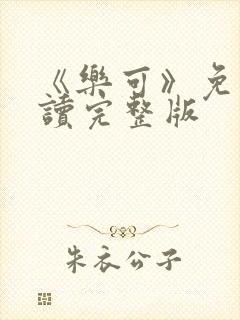 《樂可》免
讀完整版
朱衣公子